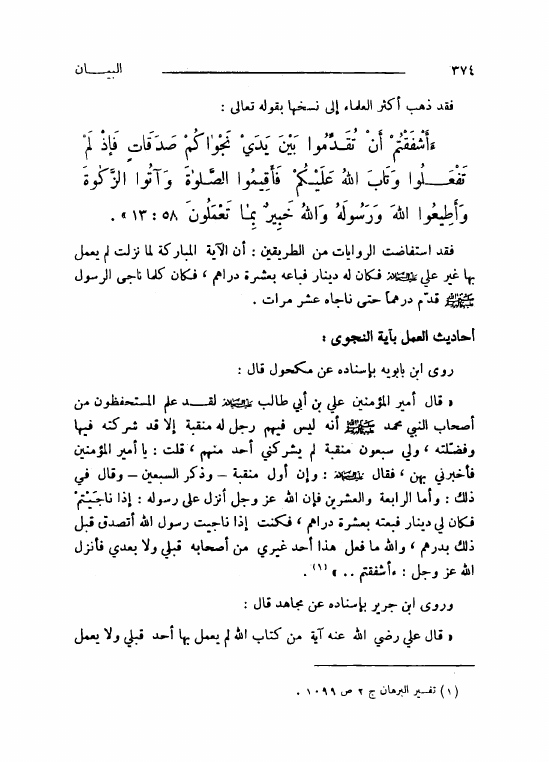 ٣٧٤ البيـــان
فقد ذهب أكثر العلماء إلى نسخها بقوله تعالى :
ءَأَشْفَقْتُمْ أَنْ تُقَدِّمُوا بَيْنَ يَدَيْ نَجْوٰاكُمْ صَدَقَاتٍ فَإِذْ لَمْ
تَفْعَـــلُوا وَتَابَ اللهُ عَلَيْـكُمْ فَأَقِيمُوا الصَّلوٰةَ وَآتُوا الزَّكٰوةَ
وَأَطِيعُوا اللهَ وَرَسُولَهُ وَاللهُ خَبِيرٌ بِمَا تَعْمَلُونَ ٥٨ : ١٣ » .
فقد استفاضت الروايات من الطريقين : أن الآية المباركة لما نزلت لم يعمل
بها غير علي عليه السلام فكان له دينار فباعه بعشرة دراهم ، فكان كلما ناجى الرسول
ﷺ قدّم درهماً حتى ناجاه عشر مرات .
أحاديث العمل بآية النجوى :
روى ابن بابويه بإسناده عن مكحول قال :
« قال أمير المؤمنين علي بن أبي طالب عليه السلام لقـــد علم المستحفظون من
أصحاب النبي محمد ﷺ أنه ليس فيهم رجل له منقبة إلا قد شركته فيها
وفضّلته ، ولي سبعون منقبة لم يشركني أحد منهم ، قلت : يا أمير المؤمنين
فأخبرني بهن ، فقال عليه السلام : وإن أول منقبة – وذكر السبعين – وقال في
ذلك : وأما الرابعة والعشرين فإن الله عز وجل أنزل على رسوله : إذا ناجَيْتمْ
فكان لي دينار فبعته بعشرة دراهم ، فكنت إذا ناجيت رسول الله أتصدق قبل
ذلك بدرهم ، والله ما فعل هذا أحد غيري من أصحابه قبلي ولا بعدي فأنزل
الله عز وجل : ءأشفقتم .. » (١) .
وروى ابن جرير بإسناده عن مجاهد قال :
« قال علي رضي الله عنه آية من كتاب الله لم يعمل بها أحد قبلي ولا يعمل
(١) تفسير البرهان ج ٢ ص ١٠٩٩ .